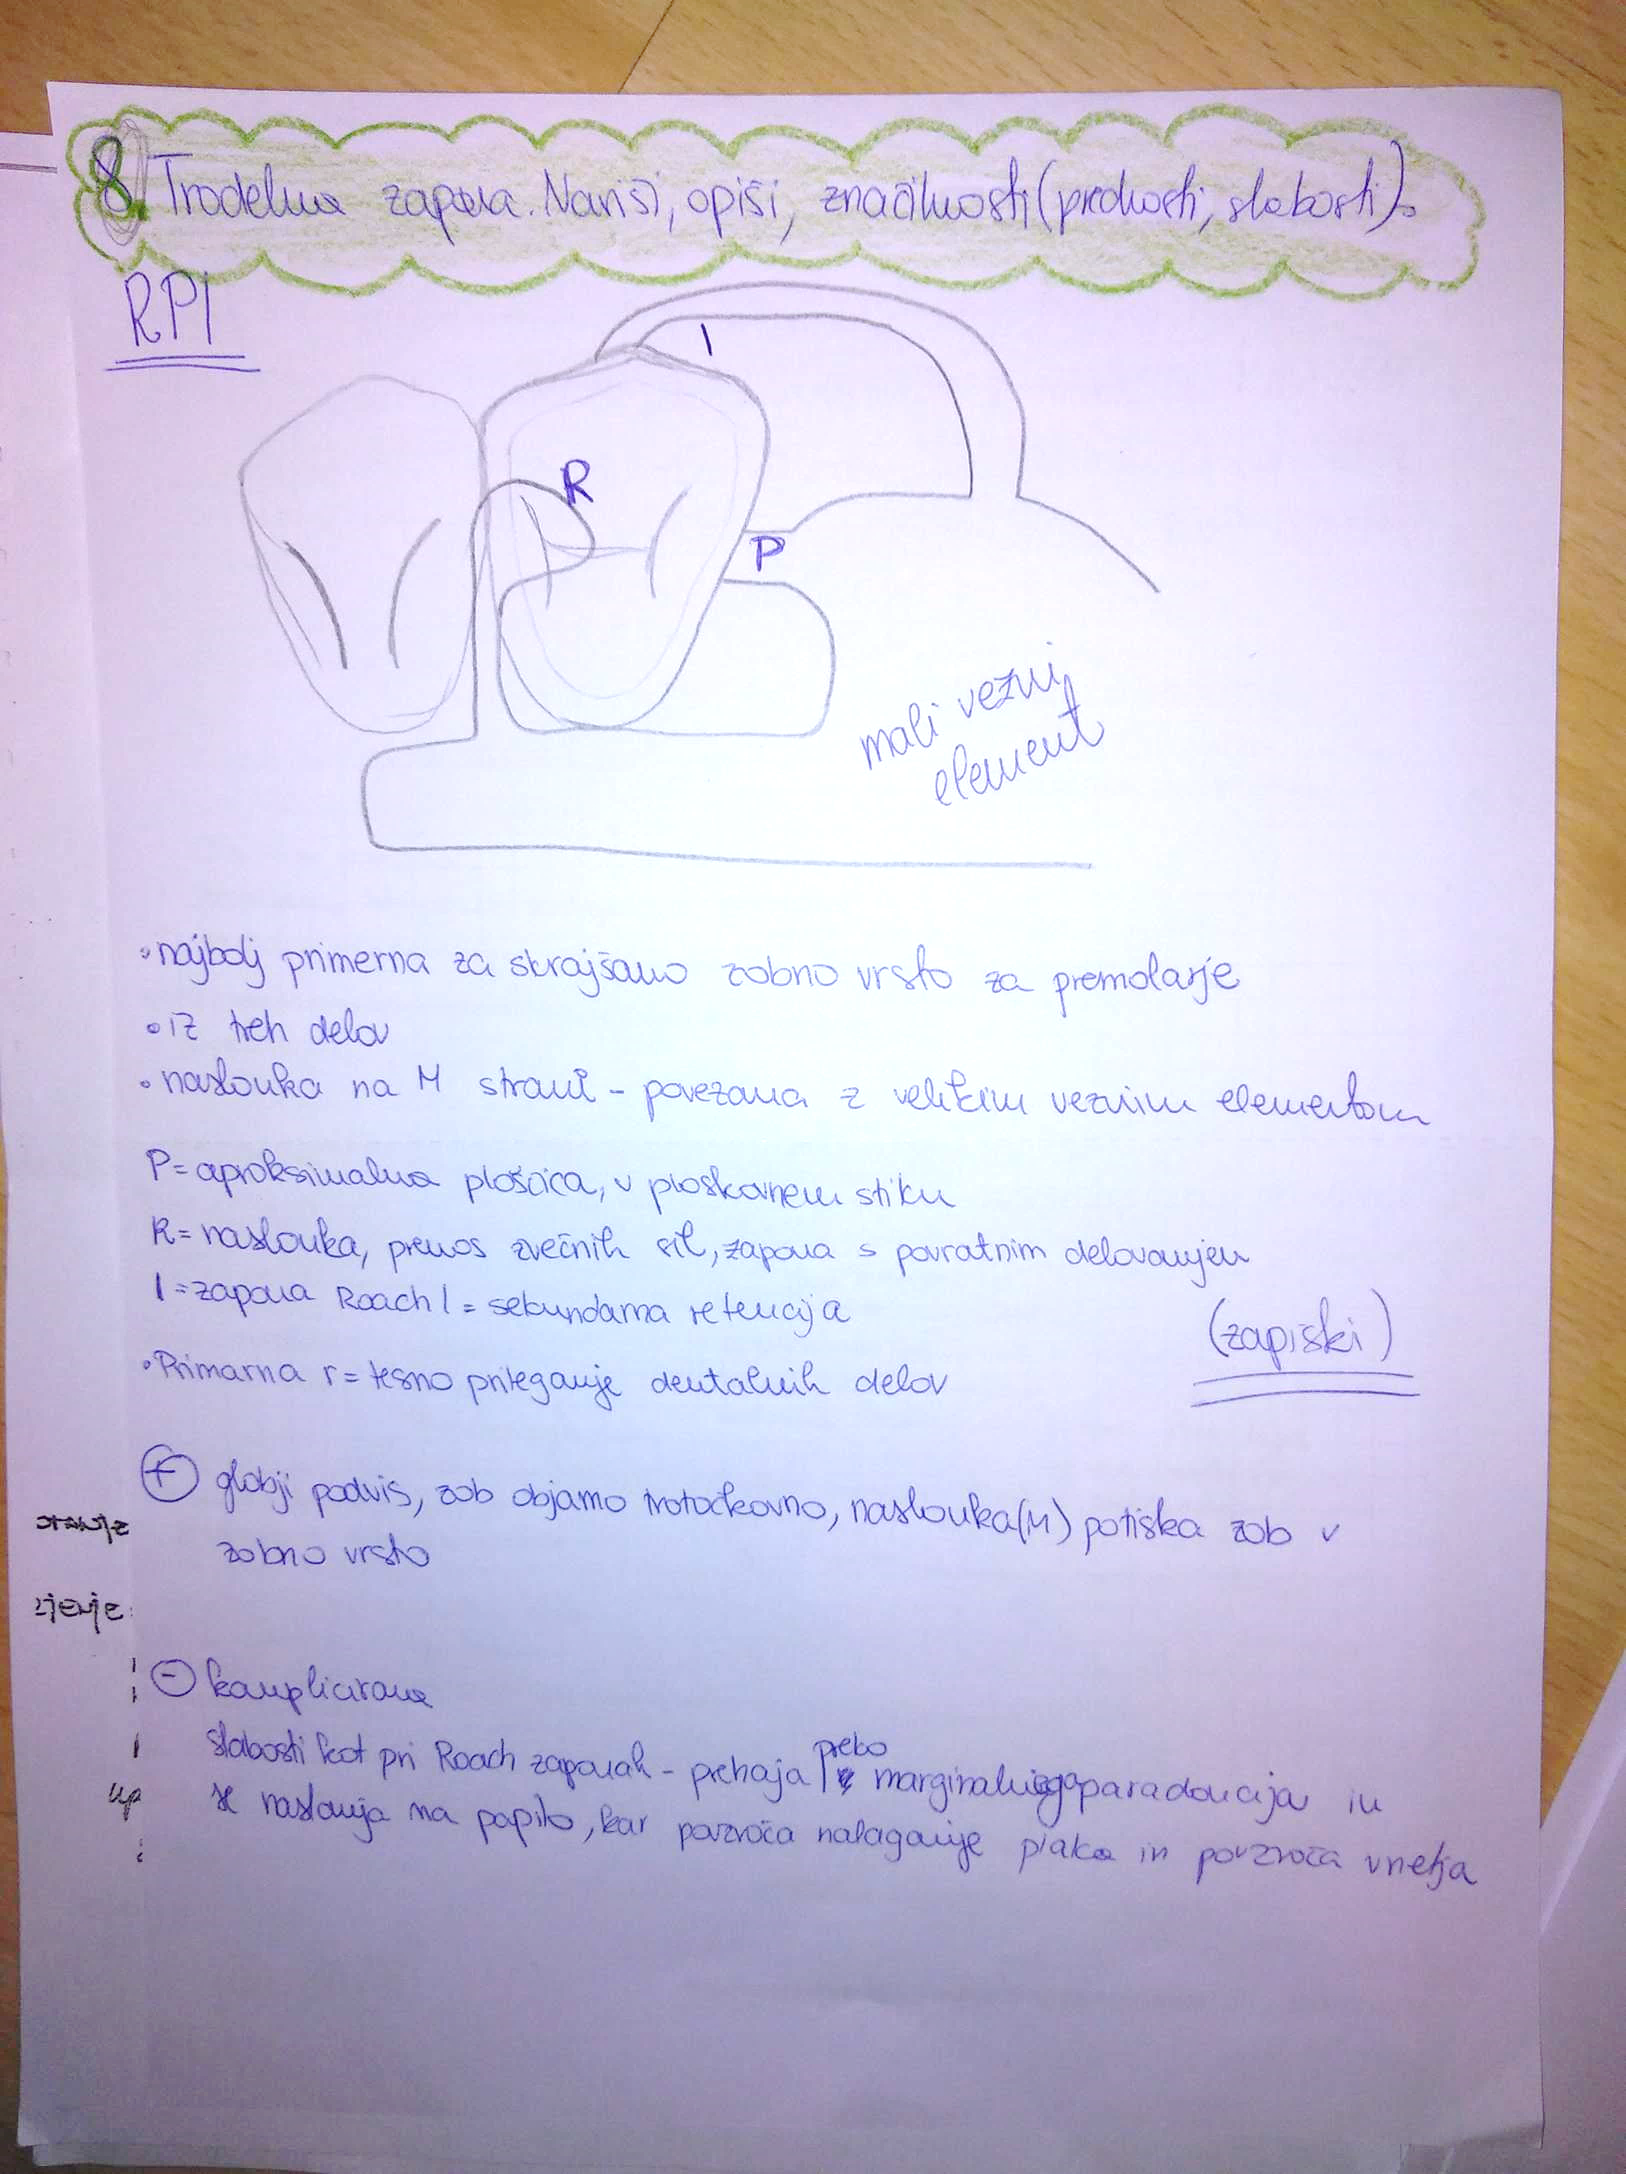 8. Trodelna zapona. Nariši, opiši, značilnosti (prednosti, slabosti).
RPI
I
R
P
mali vezni
element
• najbolj primerna za skrajšano zobno vrsto za premolarje
• iz treh delov
• naslonka na M strani - povezana z velikim veznim elementom
P = aproksimalna ploščica, v ploskovnem stiku
R = naslonka, prenos žvečnih sil, zapona s povratnim delovanjem
I = zapona Roach I = sekundarna retencija
• Primarna r = tesno prileganje dentalnih delov
(zapiski)
+ globji podvis, zob objamo trotočkovno, naslonka (M) potiska zob v
zobno vrsto
- komplicirana
slabosti kot pri Roach zaponah - prehaja preko marginalnega paradoncija in
se naslanja na papilo, kar povzroča nalaganje plaka in povzroča vnetja
up